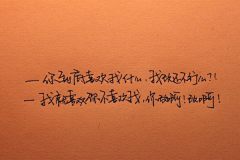 — 你到底喜欢我什么，我改还不行么?!
— 我就喜欢你不喜欢我，你改啊！改啊！